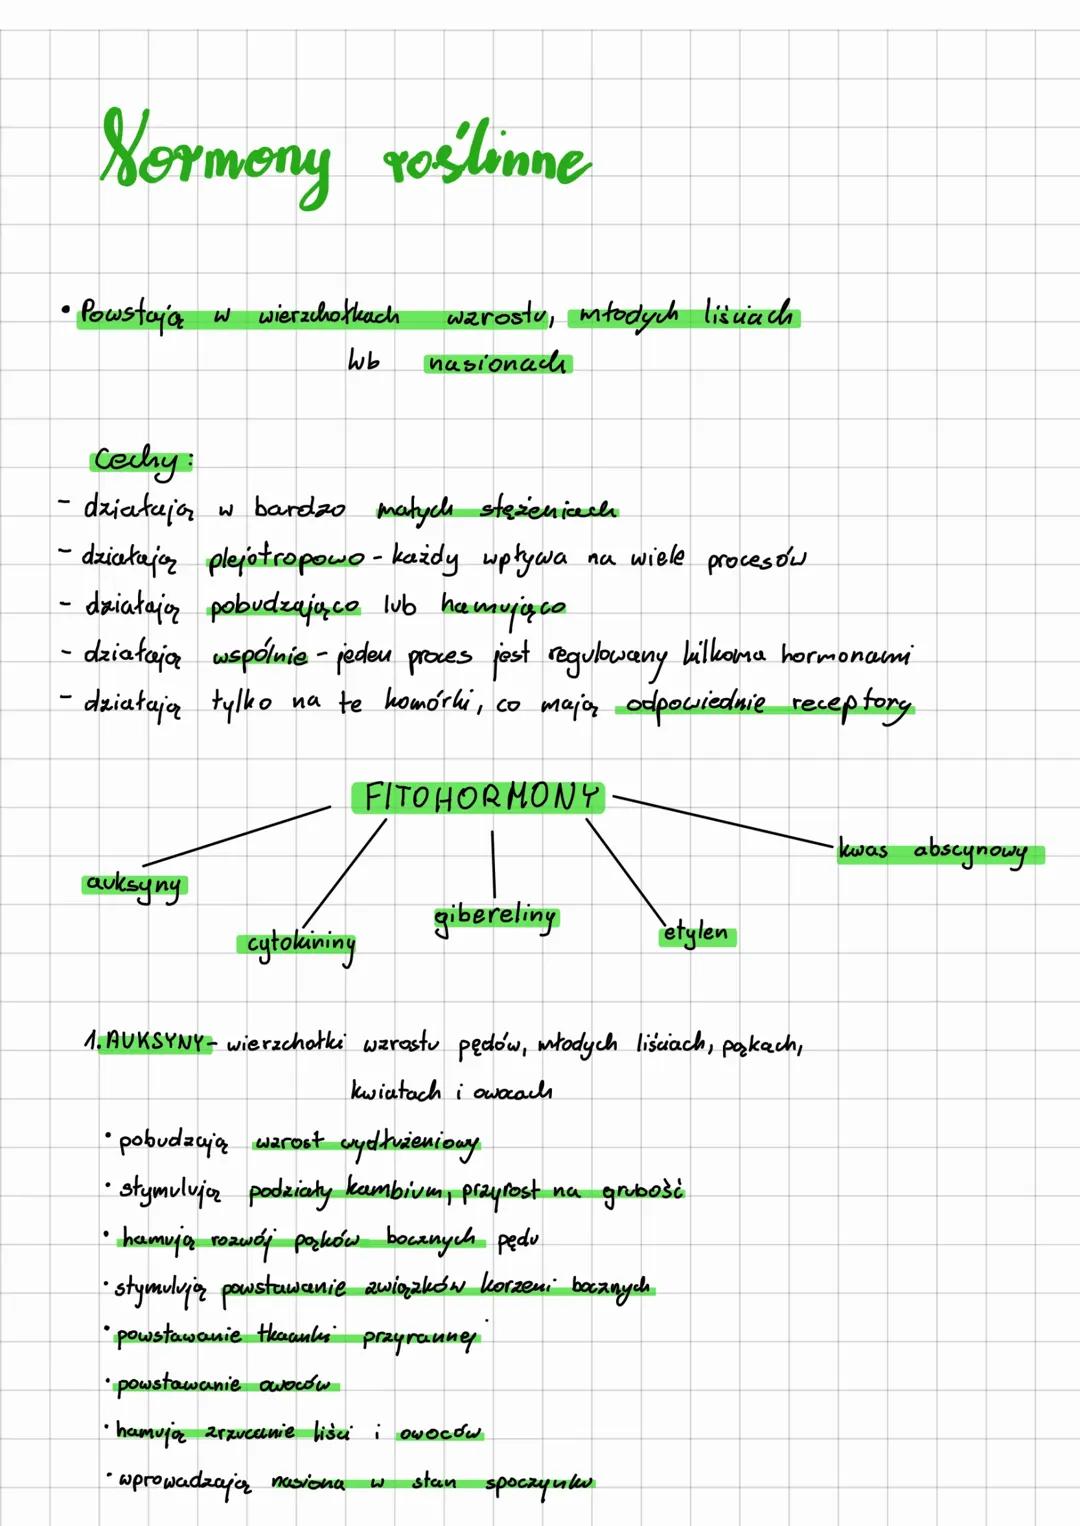 Hormony roślinne
• Powstają w wierzchołkach wzrostu, młodych liściach
lub nasionach
Cechy:
- działają w bardzo małych stężeniach
- działają plejotropowo - każdy wpływa na wiele procesów
- działają pobudzająco lub hamująco
- działają wspólnie - jeden proces jest regulowany kilkoma hormonami
- działają tylko na te komórki, co mają odpowiednie receptory
FITOHORMONY
kwas abscynowy
auksyny
gibereliny
etylen
cytokininy
1. AUKSYNY - wierzchołki wzrostu pędów, młodych liściach, pąkach,
kwiatach i owocach
• pobudzają wzrost wydłużeniowy
• stymulują podziały kambium, przyrost na grubość
• hamują rozwój pąków bocznych pędu
• stymulują powstawanie związków korzeni bocznych
• powstawanie tkanki przyrannej
• powstawanie owoców
• hamują zrzucanie liści i owoców
• wprowadzają nasiona w stan spoczynku